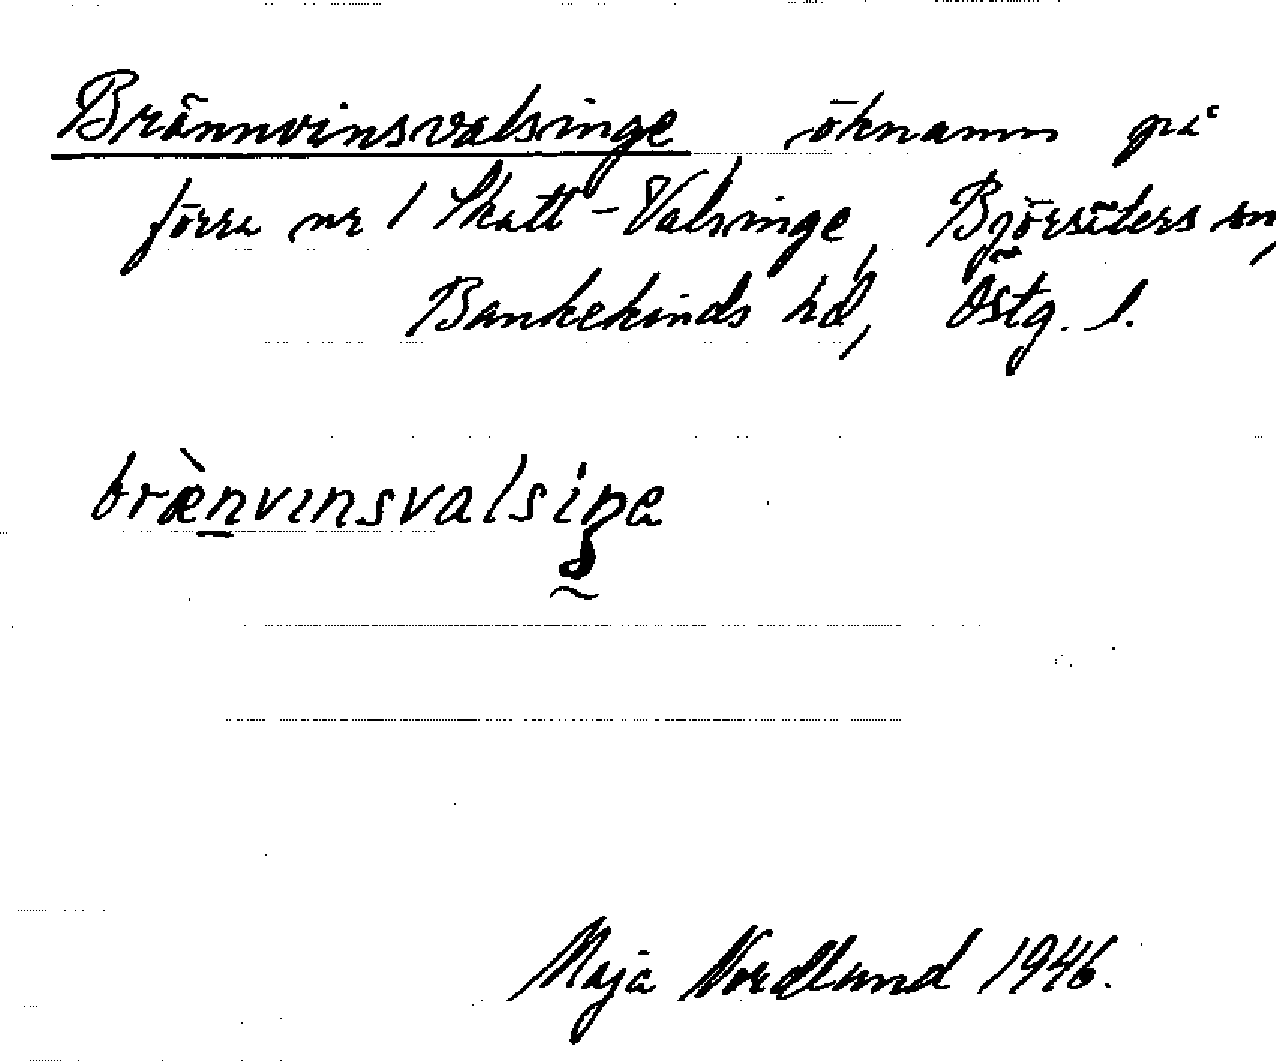 Brännvinsvalsinge öknamn på
förra nr 1 Skatt-Valsinge, Björsäters sn,
Bankekinds hd, Östg. l.
bræ̀n̲vinsvalsiŋa
Maja Nordlund 1946.